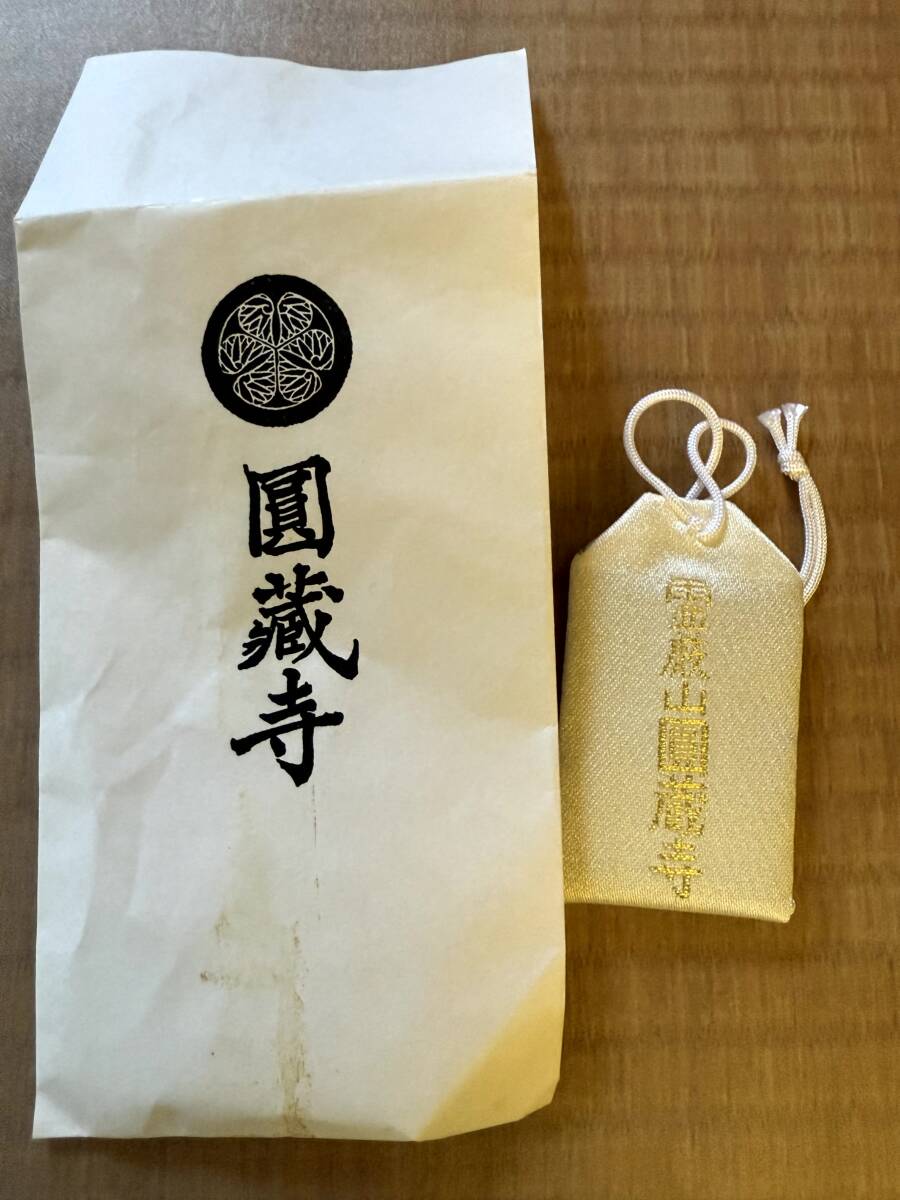 圓藏寺
霊巌山圓蔵寺